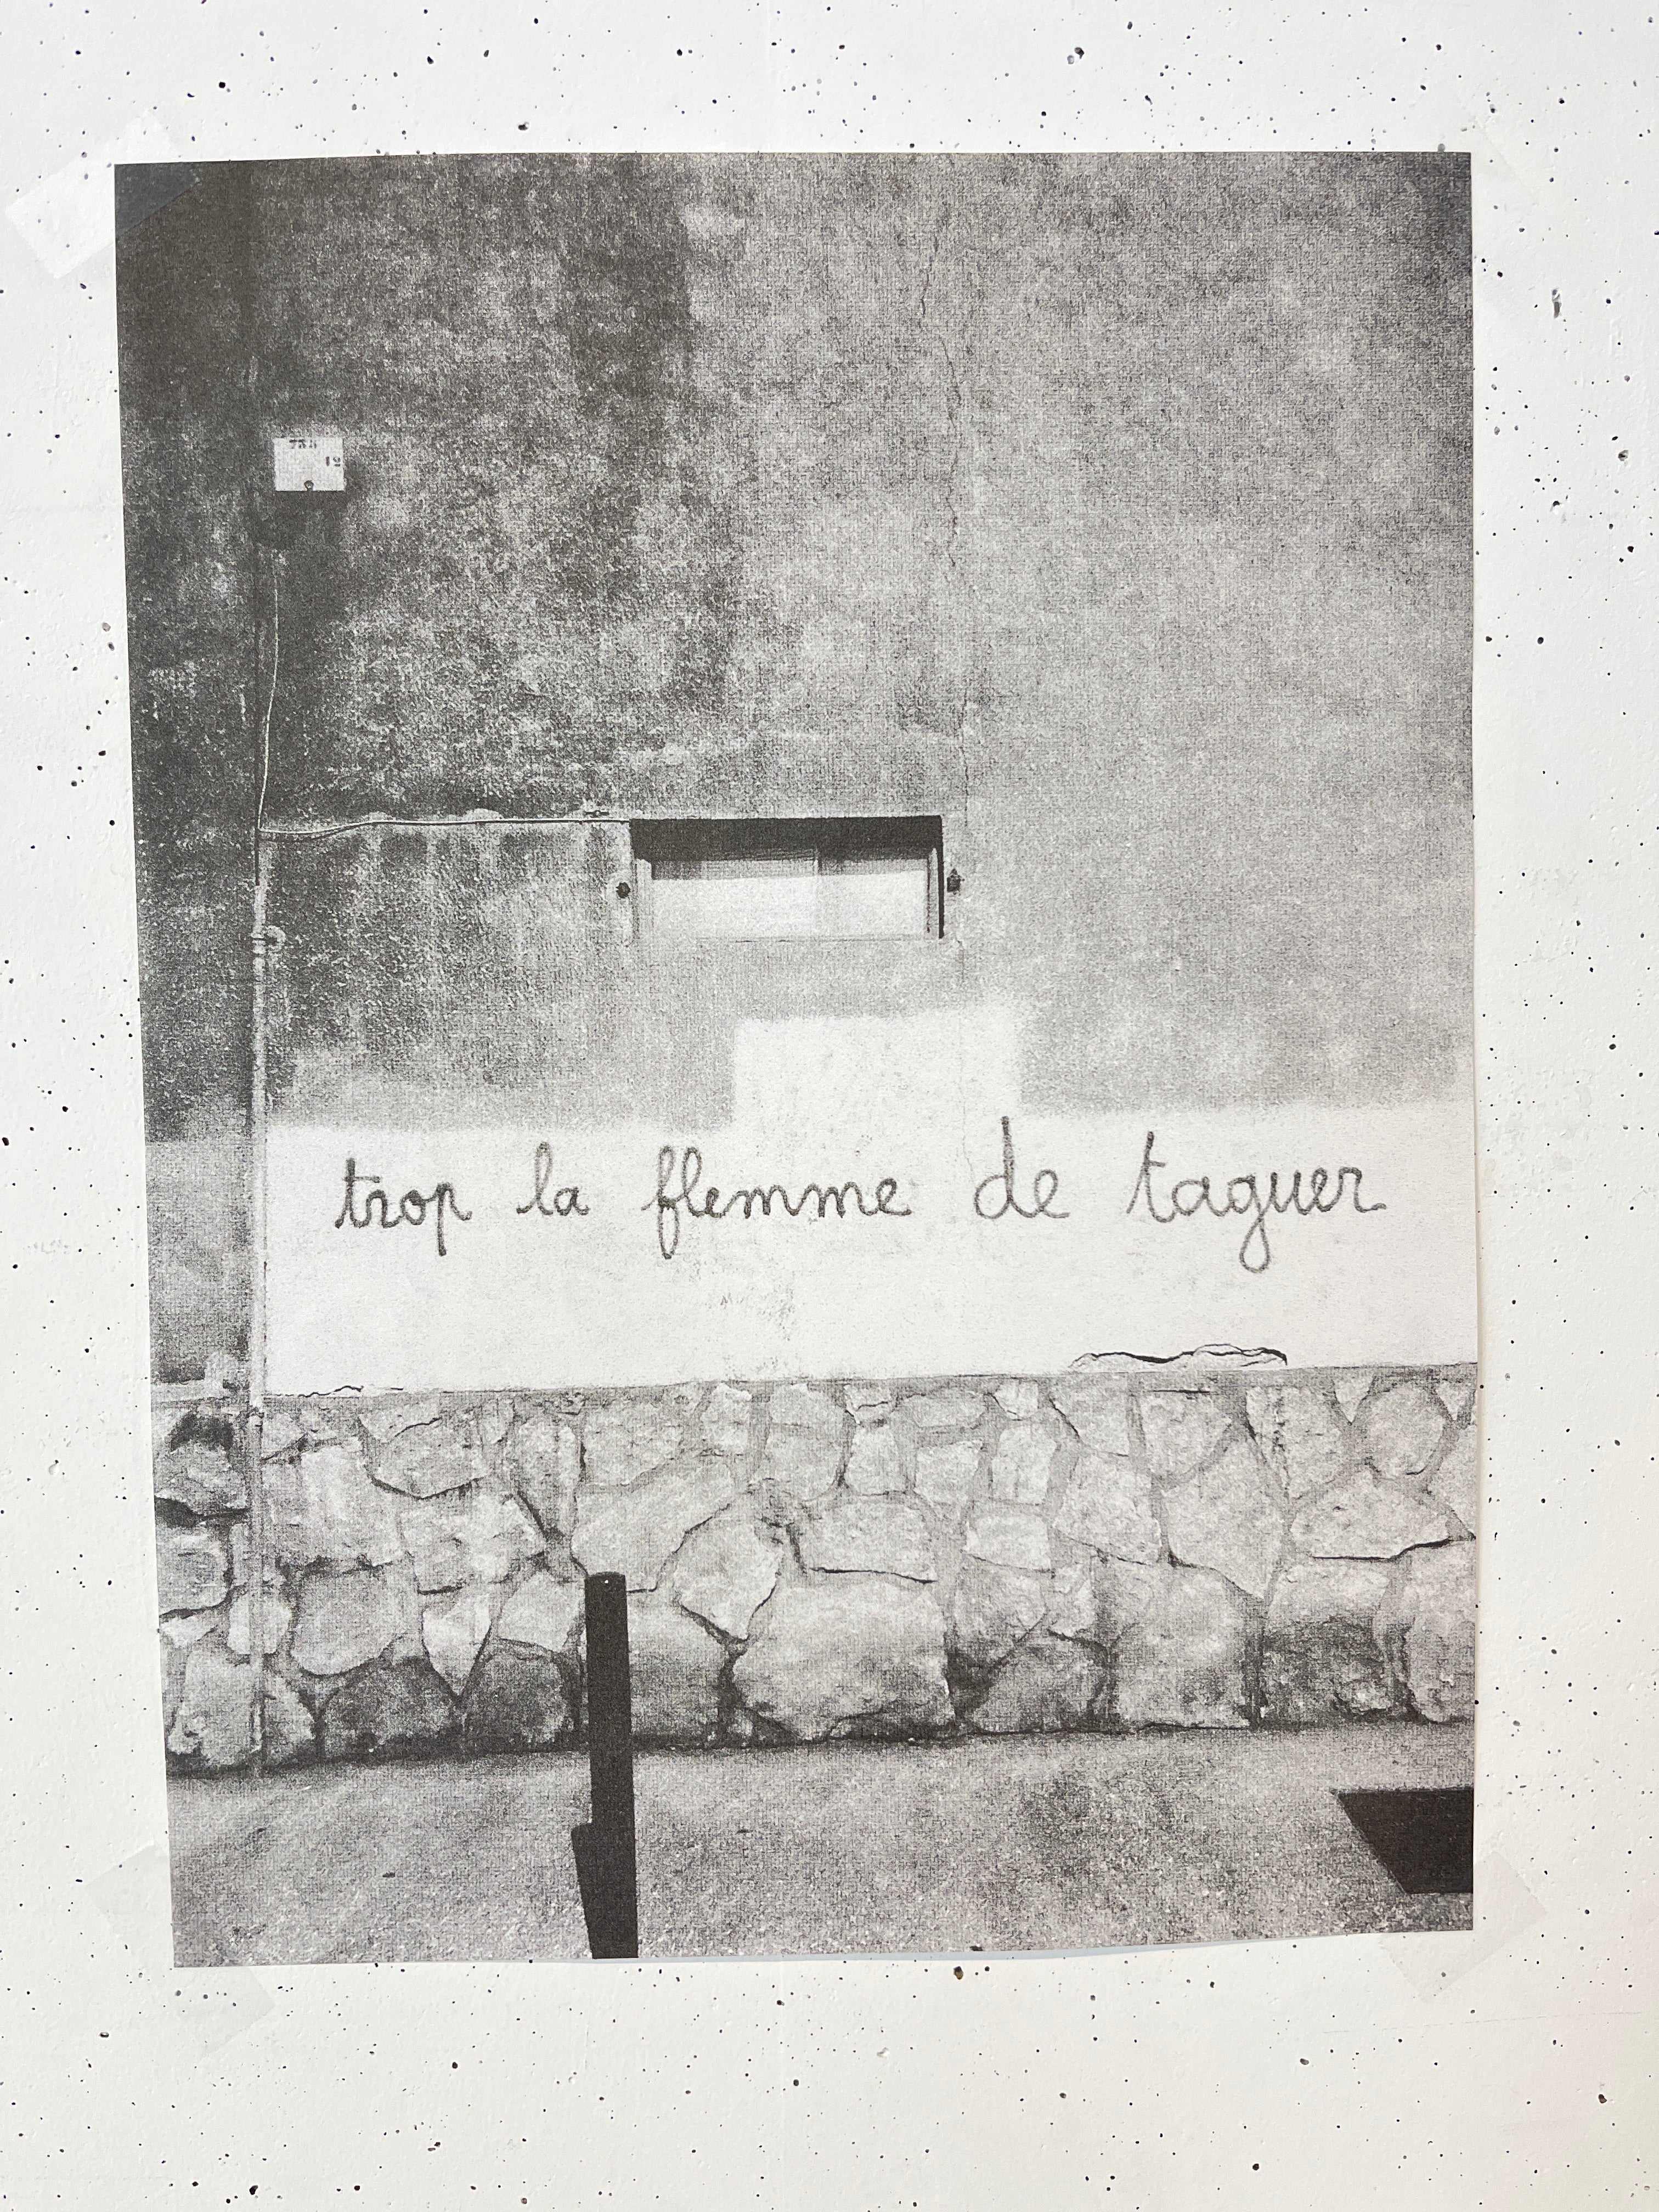 trop la flemme de taguer